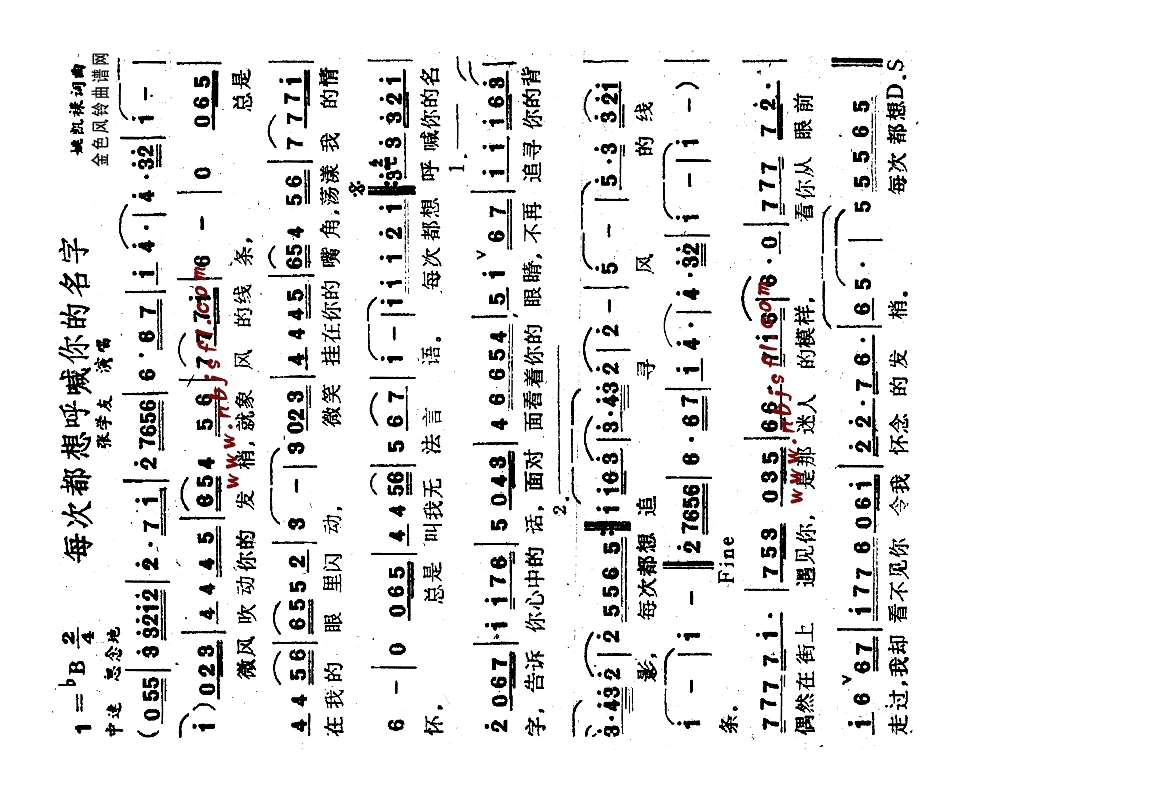 每次都想呼喊你的名字
1=♭B 2/4
张学友 演唱
姚凯禄词曲
中速 思念地
金色风铃曲谱网
(055 3 3212 2·71 2 7656 6·67 1 4· 4·32 1 -
1)023 4445 654 56 7771 6 - 0 065
微风 吹动你的 发 梢,就象 风 的线 条, 总是
445 6 6552 3 - 3 023 4445 654 56 7771
在我的 眼 里闪 动, 微笑 挂在你的 嘴 角,荡漾 我 的情
6 - 0 065 4456 567 1 - 11121 3 3 321
怀。 总是 叫我无 法 言 语。 每次 都想 呼 喊你的名
1.
2 067 1176 5 043 46654 51 67 11163
字,告诉 你心中的 话,面对 面看着你的 眼睛,不再 追寻 你的背
2.
3·432 2 5565 1163 3·432 2 - 5 - 5·3 321
影, 每次都想 追 寻 风 的 线
1 - 1 - 2 7656 6·67 1 4· 4·32 1 - 1 -)
条。 Fine
7777 1· 753 035 66 116 6·0 777 72·
偶然在 街上 遇见你,是那 迷人 的模样, 看你从 眼前
www.nbjsfl.com
www.nbjsfl.com
16 67 1776 061 22·76· 65· 5· 55565
走过,我却 看不见你 令我 怀念 的发 梢。 每次 都想D.S